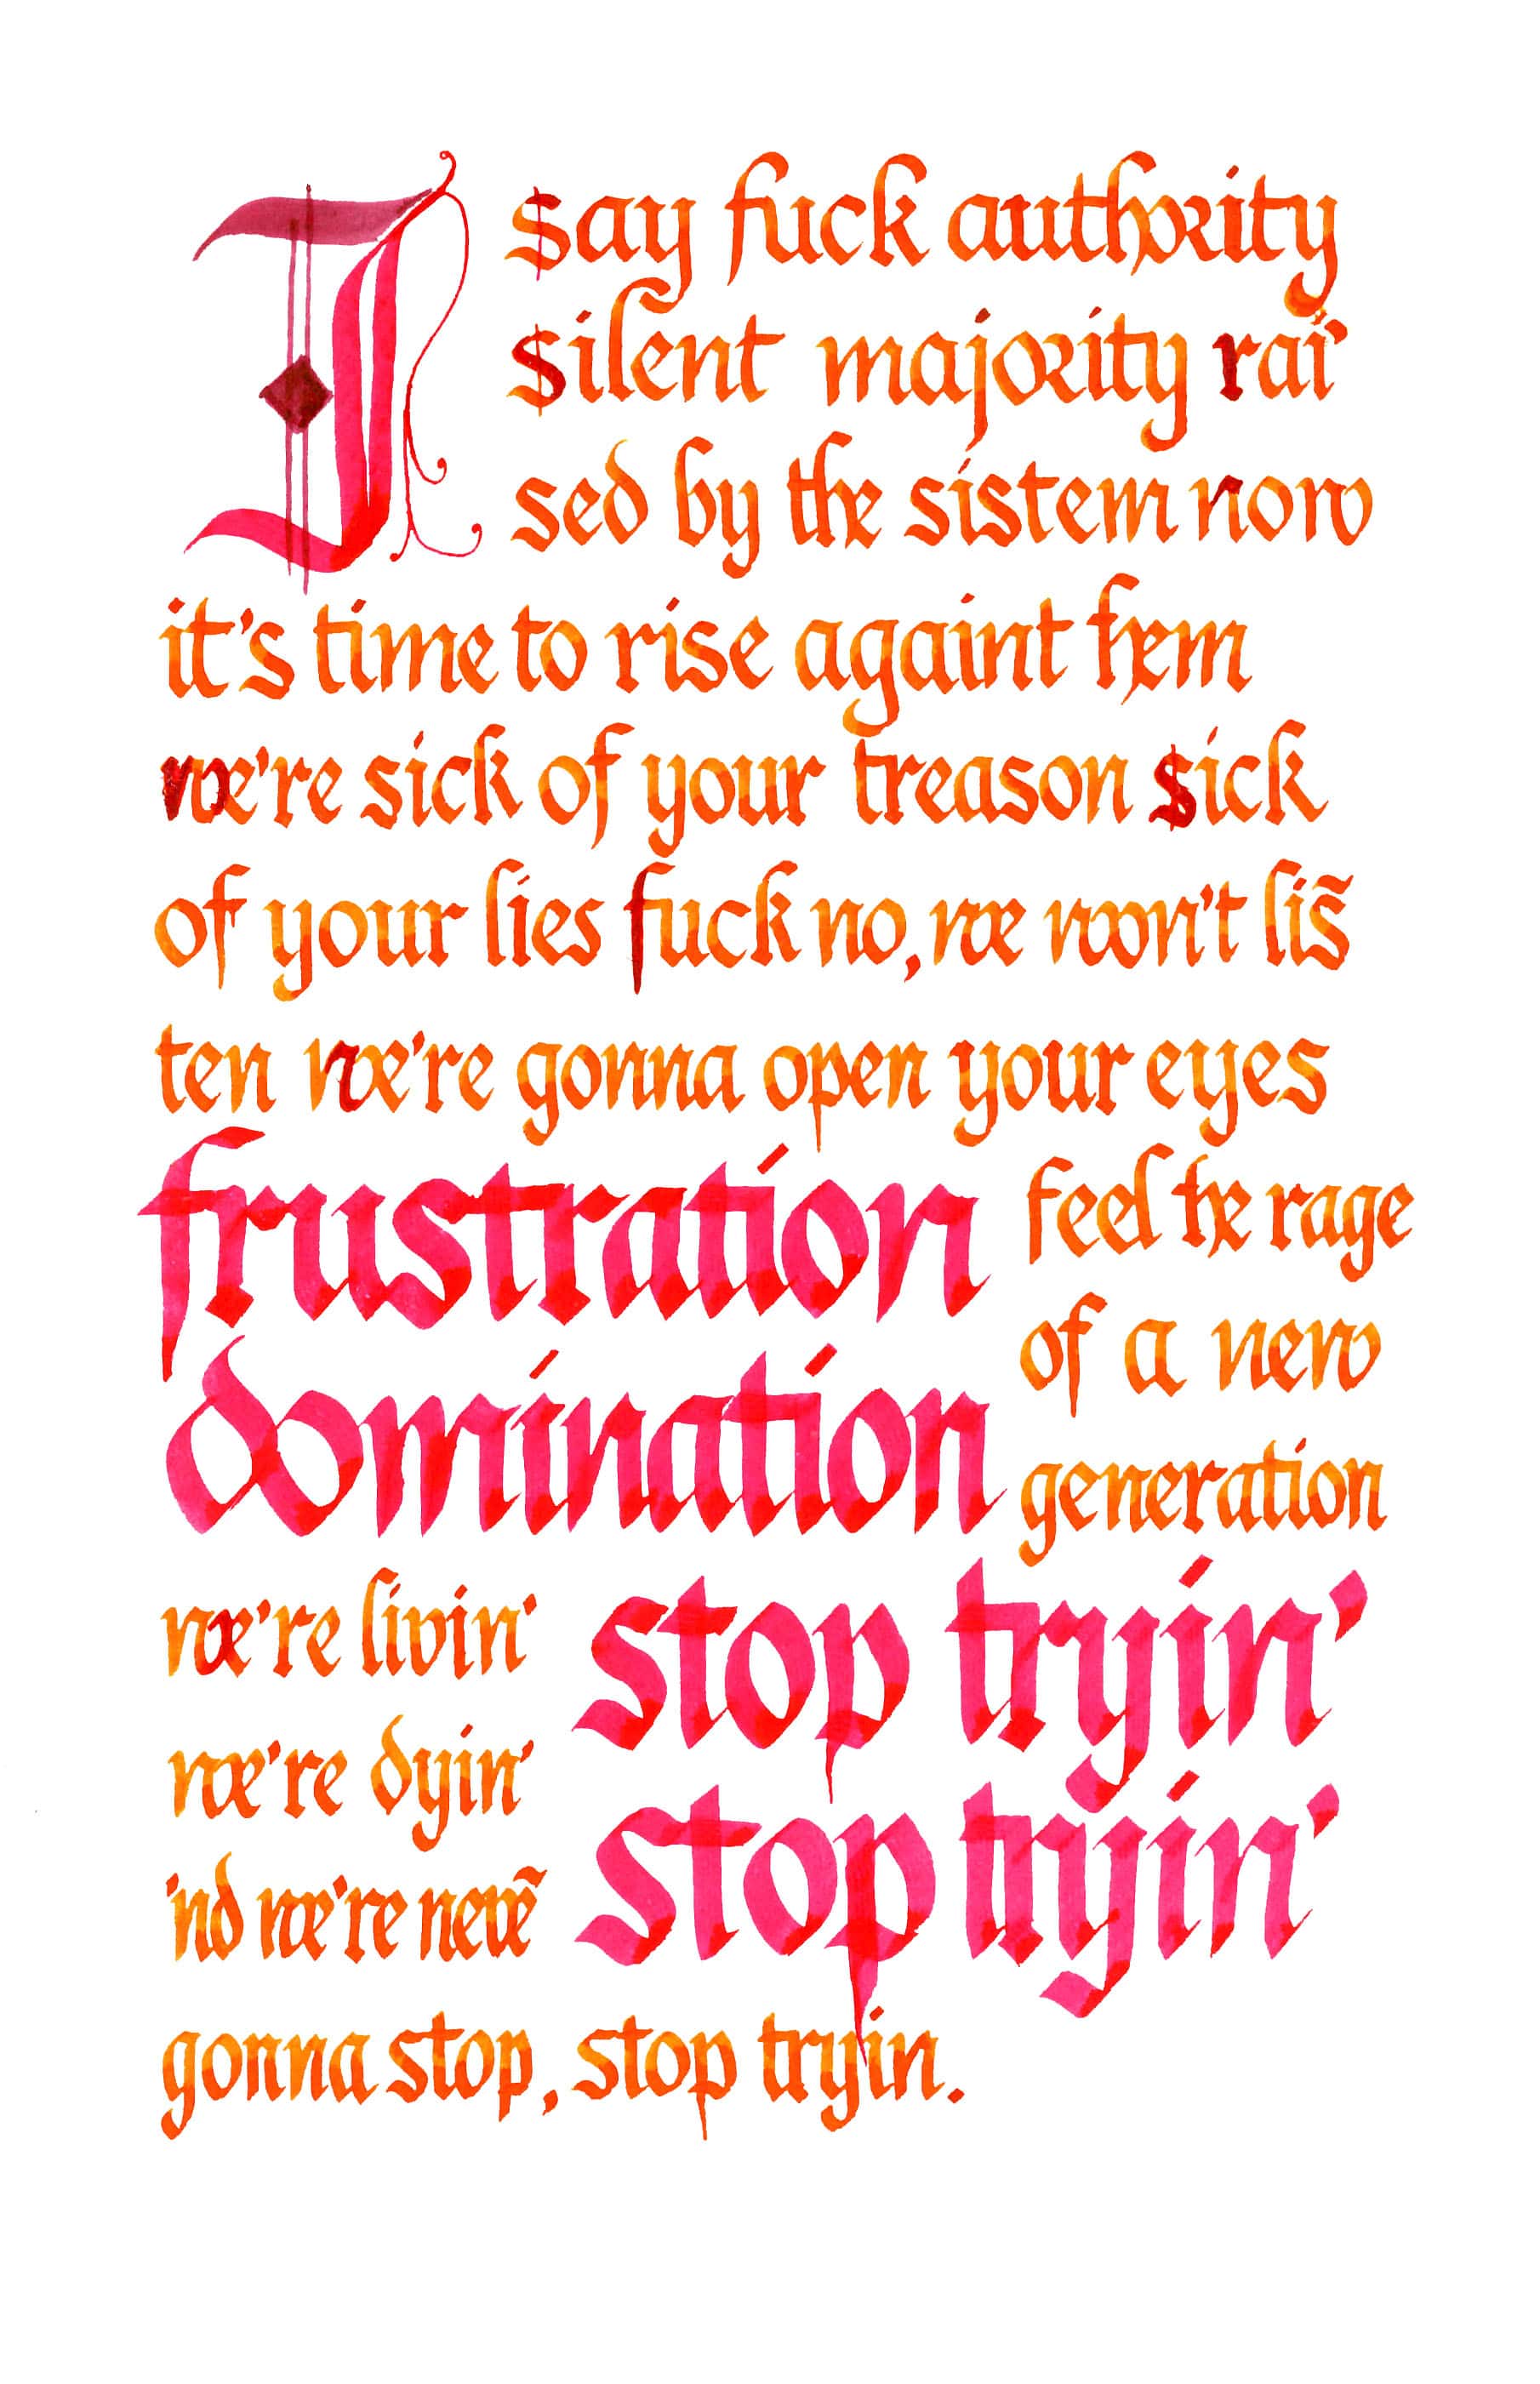 I say fuck authority
silent majority rai
sed by the sistem now
it's time to rise againt them
we're sick of your treason sick
of your lies fuck no, we won't lis̃
ten we're gonna open your eyes
frustration
feel the rage
of a new
domination
generation
we're livin'
stop tryin'
we're dyin'
stop tryin'
'nd we're nevẽ
gonna stop, stop tryin.